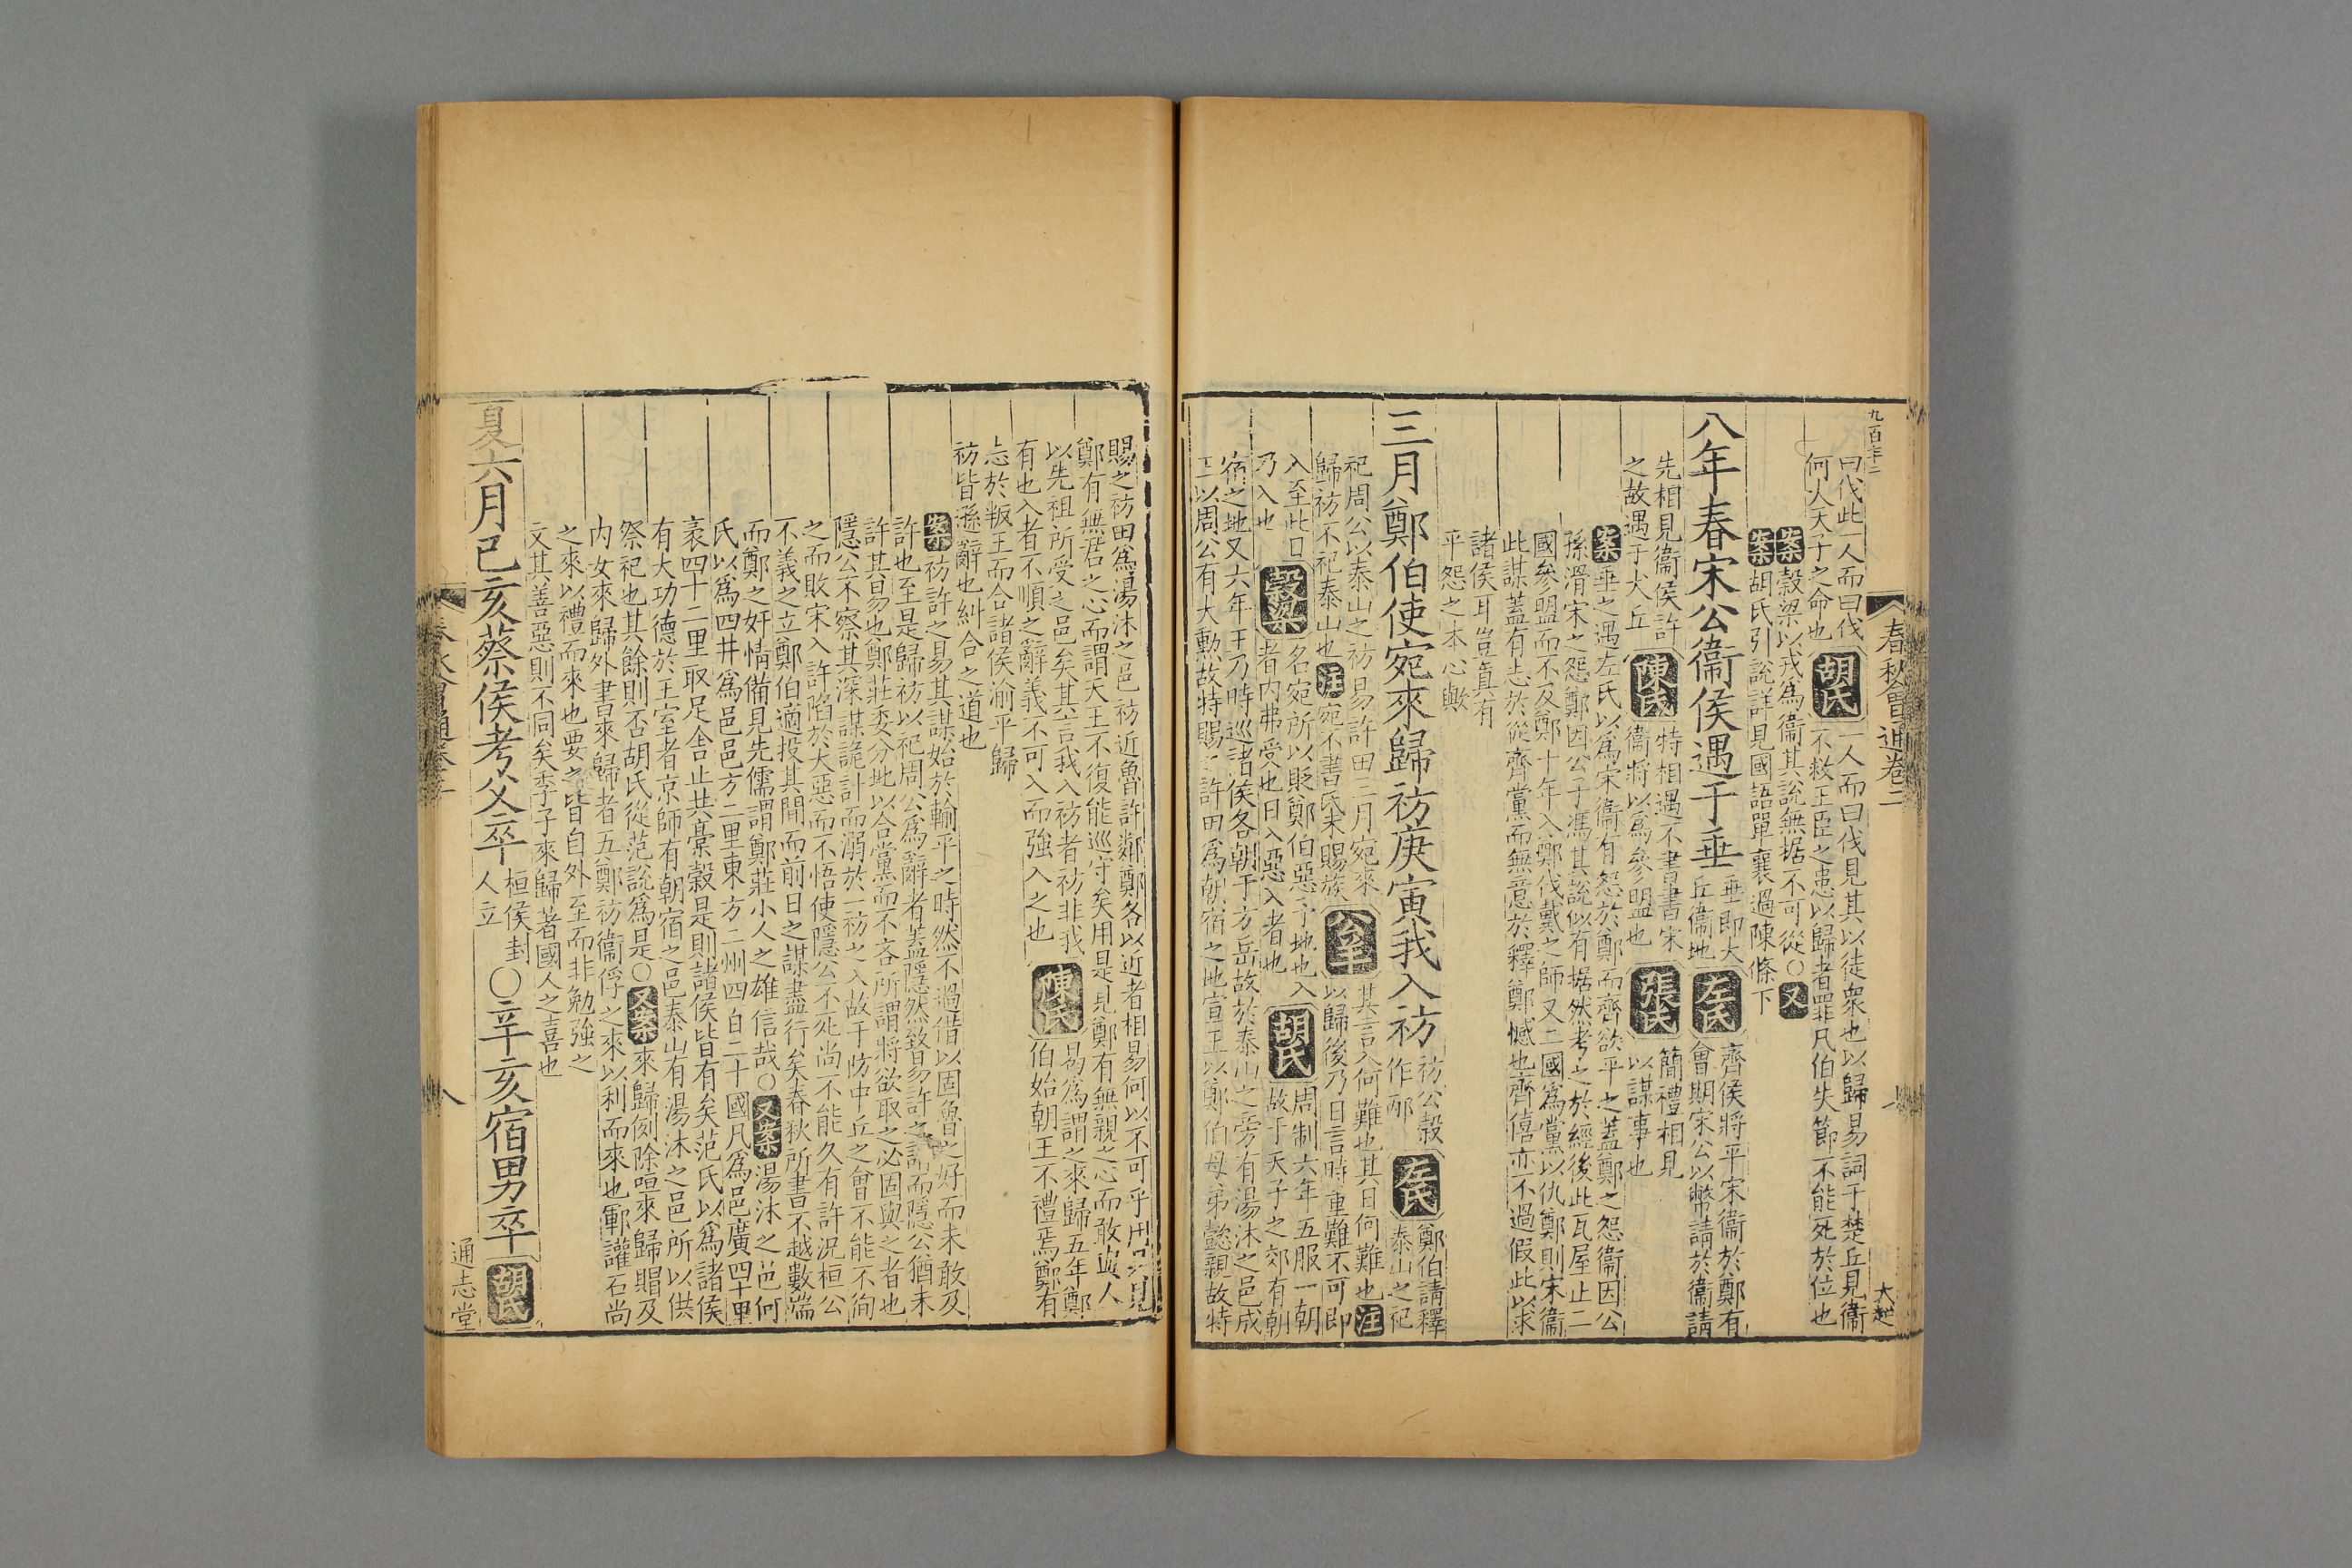 九百年二
春秋會通卷二
大越
曰伐此一人而曰伐
何人天子之命也
胡氏
一人而曰伐見其以徒衆也以歸易詞于楚丘見衞
不救王臣之患以歸者罪凡伯失節不能死於位也
案穀梁以戎為衞其說無据不可從○又
案胡氏引說詳見國語單襄過陳條下
八年春宋公衞侯遇于垂
垂即犬
丘衞地
左氏
齊侯將平宋衞於鄭有
會期宋公以幣請於衞請
先相見衞侯許
之故遇于犬丘
陳氏
特相遇不書書宋
衞將以爲參盟也
張氏
簡禮相見
以謀事也
案垂之遇左氏以爲宋衞有怨於鄭而齊欲平之蓋鄭之怨衞因公
孫滑宋之怨鄭因公子馮其說似有据然考之於經後此瓦屋止二
國參盟而不及鄭十年入鄭伐戴之師又二國爲黨以仇鄭則宋衞
此謀蓋有志於從齊黨而無意於釋鄭憾也齊僖亦不過假此以求
諸侯耳豈真有
平怨之本心歟
三月鄭伯使宛來歸祊庚寅我入祊
祊公穀
作邴
左氏
鄭伯請釋
泰山之祀
祀周公以泰山之祊易許田三月宛來
歸祊不祀泰山也注宛不書氏未賜族
公羊
其言入何難也其日何難也注
以歸後乃日言時重難不可即
入至此日
乃入也
穀梁
名宛所以貶鄭伯惡予地也入
者内弗受也日入惡入者也
胡氏
周制六年五服一朝
故于天子之郊有朝
宿之地又六年王乃時巡諸侯各朝于方岳故於泰山之旁有湯沐之邑成
王以周公有大勲故特賜之許田爲朝宿之地宣王以鄭伯母弟懿親故特
賜之祊田爲湯沐之邑祊近魯許鄰鄭各以近者相易何以不可乎用是見
鄭有無君之心而謂天王不復能巡守矣用是見鄭有無親之心而敢與人
以先祖所受之邑矣其言我入祊者祊非我
有也入者不順之辭義不可入而強入之也
陳氏
曷爲謂之來歸五年鄭
伯始朝王不禮焉鄭有
志於叛王而合諸侯渝平歸
祊皆遜辭也糾合之道也
案祊許之易其謀始於輸平之時然不過借以固魯之好而未敢及
許也至是歸祊以祀周公爲辭者蓋隱然致易許之請而隱公猶未
許其易也鄭莊委分地以合黨而不吝所謂將欲取之必固與之者也
隱公不察其深謀詭計而溺於一祊之入故于防中丘之會不能不徇
之而敗宋入許陷於大惡而不悟使隱公不死尚不能久有許況桓公
不義之立鄭伯適投其間而前日之謀盡行矣春秋所書不越數端
而鄭之奸情備見先儒謂鄭莊小人之雄信哉○又案湯沐之邑何
氏以爲四井爲邑邑方二里東方二州四百二十國凡爲邑廣四十里
袤四十二里取足舍止共稾穀是則諸侯皆有矣范氏以爲諸侯
有大功德於王室者京師有朝宿之邑泰山有湯沐之邑所以供
祭祀也其餘則否胡氏從范說爲是○又案來歸例除咺來歸賵及
内女來歸外書來歸者五鄭祊衞俘之來以利而來也鄆讙石尚
之來以禮而來也要之皆自外至而非勉強之
文其善惡則不同矣季子來歸著國人之喜也
夏六月己亥蔡侯考父卒
桓侯封
人立
○辛亥宿男卒
胡氏
通志堂
八